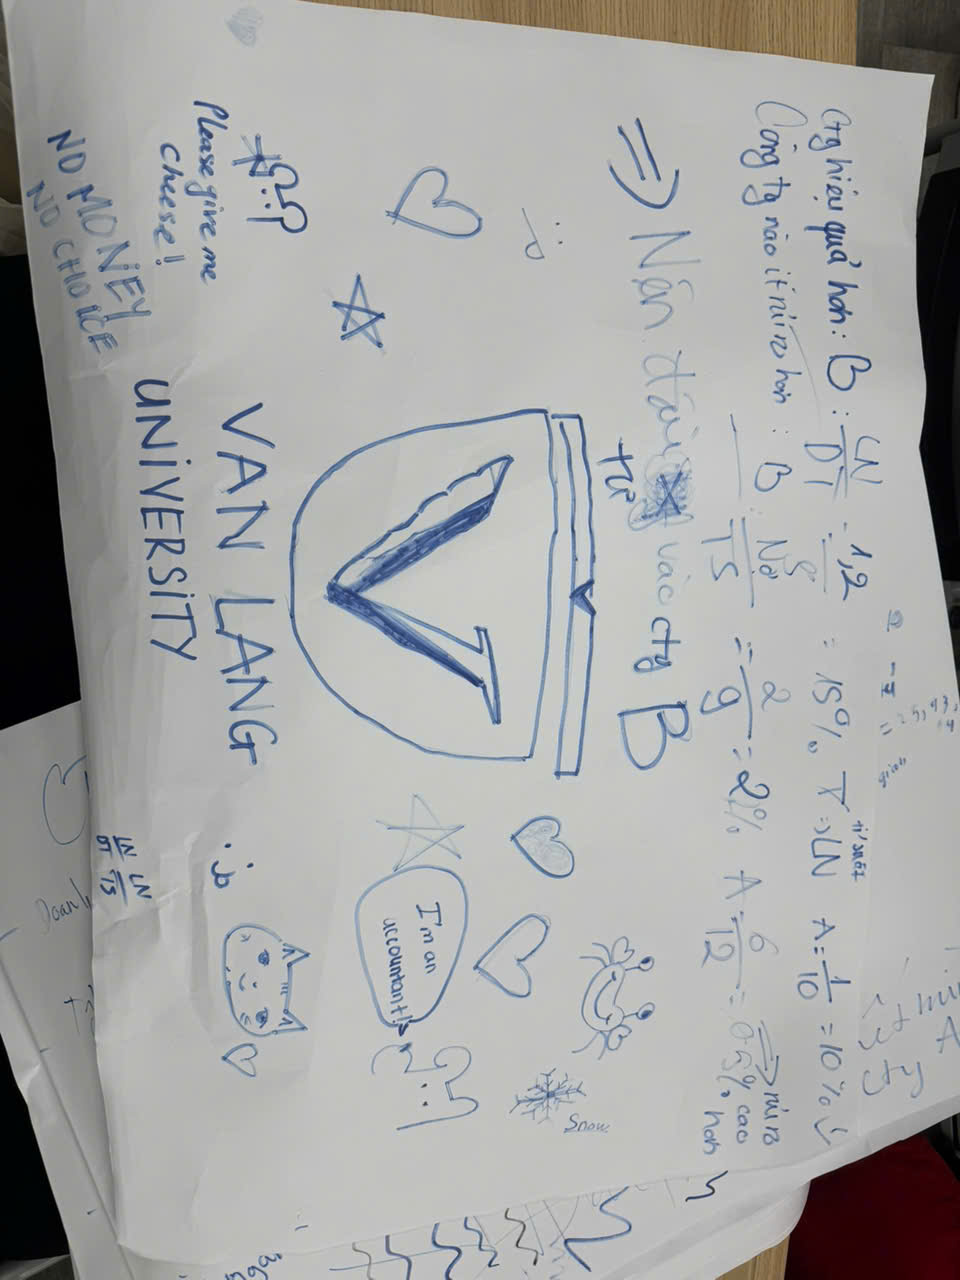 Cty hiệu quả hơn: B: LN/DT = 1,2/8 = 15% T⇒LN A = 1/10 = 10% ↓
tỉ suất
Công ty nào ít rủi ro hơn: B: Nợ/TS = 2/9 = 2% A = 6/12 = 0,5% ⇒ rủi ro cao hơn
⇒ Nên đầu tư vào cty B
Snow
I'm an
accountant!
Please give me
cheese!
VAN LANG
UNIVERSITY
NO MONEY
NO CHOICE
LN/DT LN/TS
Doanh